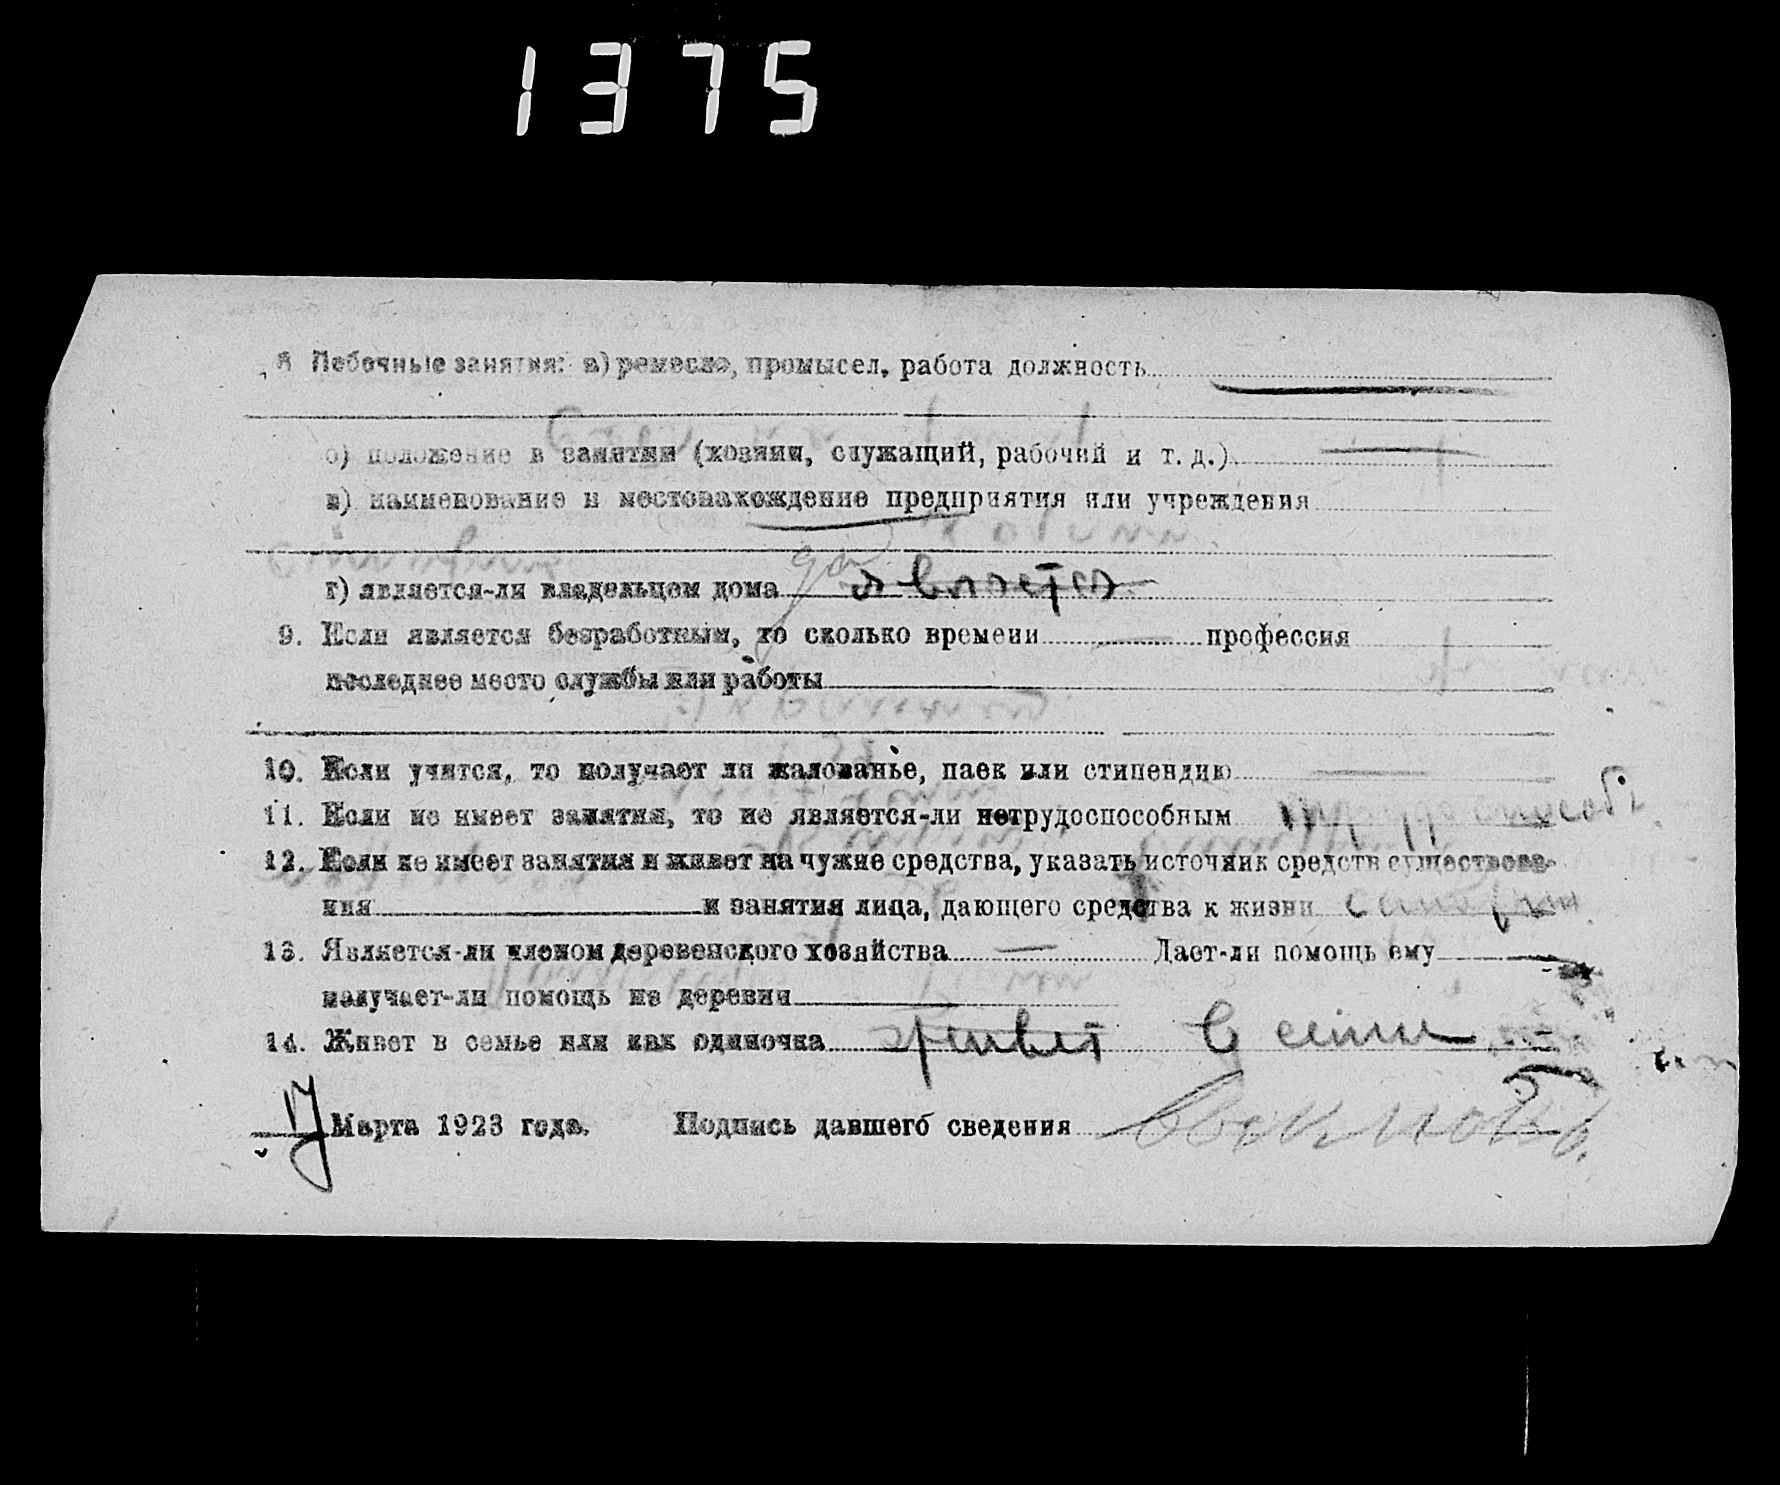 1375
8 Побочные занятия: а) ремесло, промысел, работа должность
б) положение в занятии (хозяин, служащий, рабочий и т. д.)
в) наименование и местонахождение предприятия или учреждения
г) является-ли владельцем дома да является
9. Если является безработным, то сколько времени профессия
последнее место службы или работы
10. Если учится, то получает ли жалованье, паек или стипендию
11. Если не имеет занятия, то не является-ли нетрудоспособным
12. Если не имеет занятия и живет на чужие средства, указать источник средств существова-
ния и занятия лица, дающего средства к жизни
13. Является-ли членом деревенского хозяйства Дает-ли помощь ему
малучает-ли помощь из деревни
14. Живет в семье или как одиночка живет в семье
17 Марта 1923 года. Подпись давшего сведения